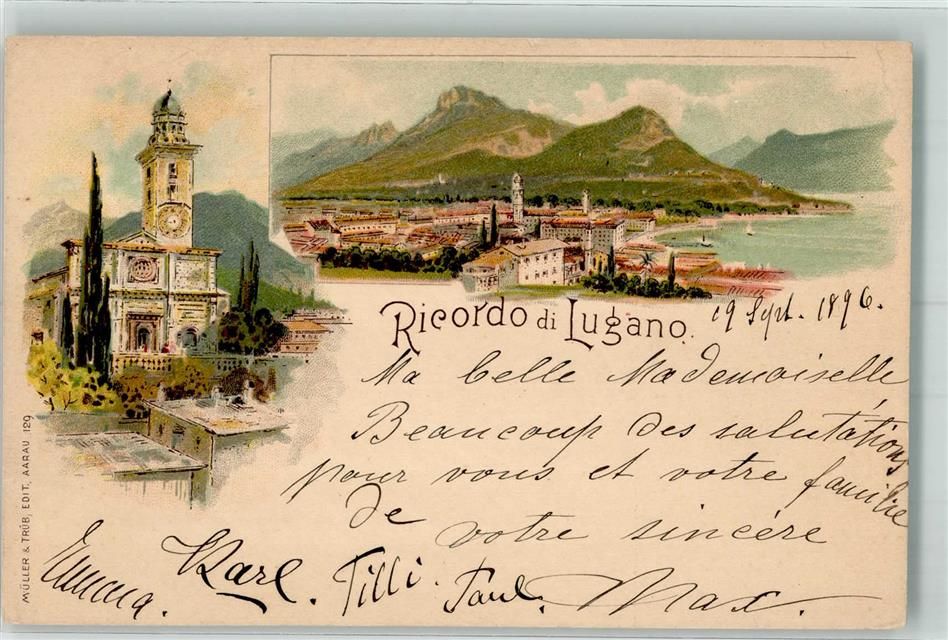 Ricordo di Lugano.
19 Sept. 1896.
Ma belle Mademoiselle
Beaucoup des salutátions
pour vous et votre familie
de
votre sincére
Emma. Karl. Tilli. Paul. Max.
MÜLLER & TRÜB, EDIT, AARAU 129